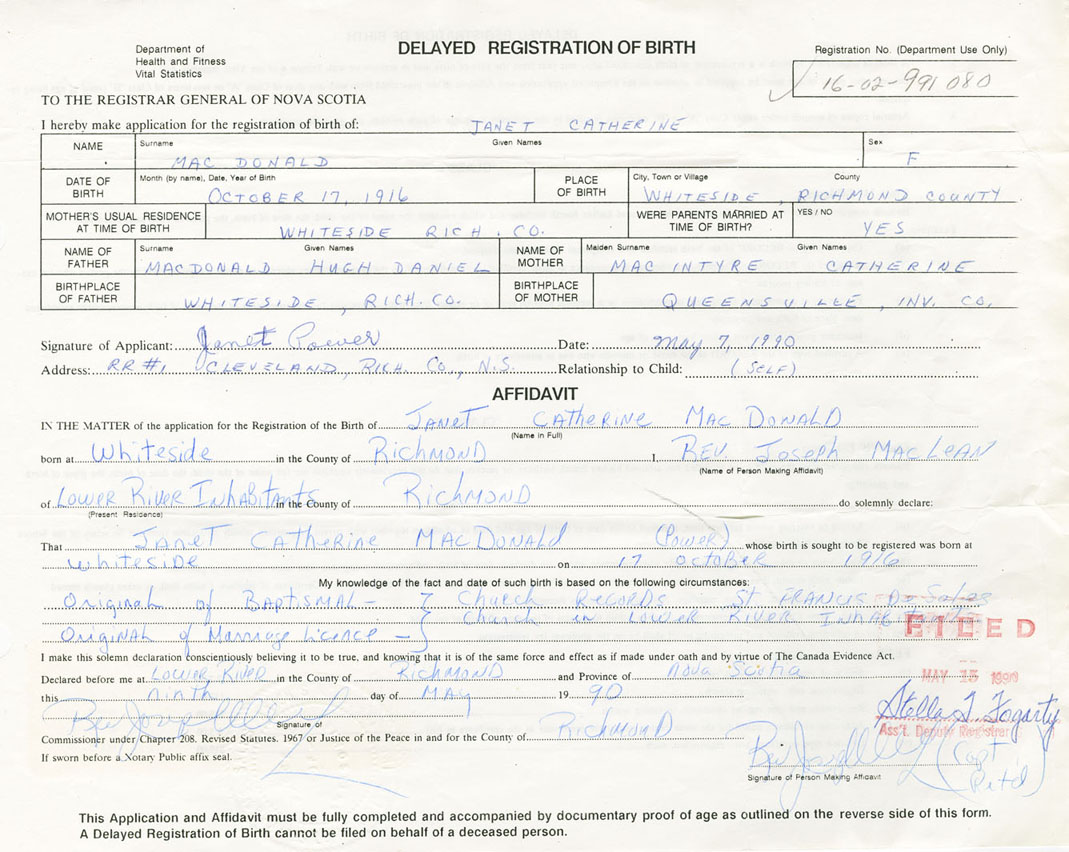 Department of
Health and Fitness
Vital Statistics
DELAYED REGISTRATION OF BIRTH
Registration No. (Department Use Only)
16-02-991080
TO THE REGISTRAR GENERAL OF NOVA SCOTIA
I hereby make application for the registration of birth of: JANET CATHERINE
NAME Surname Given Names Sex
MAC DONALD F
DATE OF BIRTH Month (by name), Date, Year of Birth PLACE OF BIRTH City, Town or Village County
OCTOBER 17, 1916 WHITESIDE, RICHMOND COUNTY
MOTHER'S USUAL RESIDENCE AT TIME OF BIRTH WERE PARENTS MARRIED AT TIME OF BIRTH? YES / NO
WHITESIDE RICH. CO. YES
NAME OF FATHER Surname Given Names NAME OF MOTHER Maiden Surname Given Names
MACDONALD HUGH DANIEL MAC INTYRE CATHERINE
BIRTHPLACE OF FATHER BIRTHPLACE OF MOTHER
WHITESIDE, RICH. CO. QUEENSVILLE, INV. CO.
Signature of Applicant: Janet Power Date: May 7, 1990
Address: RR #1 CLEVELAND, RICH. CO., N.S. Relationship to Child: (SELF)
AFFIDAVIT
IN THE MATTER of the application for the Registration of the Birth of JANET CATHERINE MAC DONALD
(Name in Full)
born at Whiteside in the County of RICHMOND I, REV. JOSEPH MACLEAN
(Name of Person Making Affidavit)
of LOWER RIVER INHABITANTS in the County of RICHMOND do solemnly declare:
(Present Residence)
That JANET CATHERINE MACDONALD (POWER) whose birth is sought to be registered was born at
Whiteside on 17 October 1916
My knowledge of the fact and date of such birth is based on the following circumstances:
Original of Baptismal - } Church Records St Francis De Sales
Original of Marriage Licence - } Church in Lower River Inhabitants
FILED
I make this solemn declaration conscientiously believing it to be true, and knowing that it is of the same force and effect as if made under oath and by virtue of The Canada Evidence Act.
Declared before me at Lower River in the County of Richmond and Province of Nova Scotia
MAY 15 1990
this ninth day of MAY 19 90
Stella T. Fogarty
Ass't. Deputy Registrar
Signature of
Commissioner under Chapter 208. Revised Statutes. 1967 or Justice of the Peace in and for the County of Richmond
If sworn before a Notary Public affix seal.
(Capt Ret'd)
Signature of Person Making Affidavit
This Application and Affidavit must be fully completed and accompanied by documentary proof of age as outlined on the reverse side of this form.
A Delayed Registration of Birth cannot be filed on behalf of a deceased person.